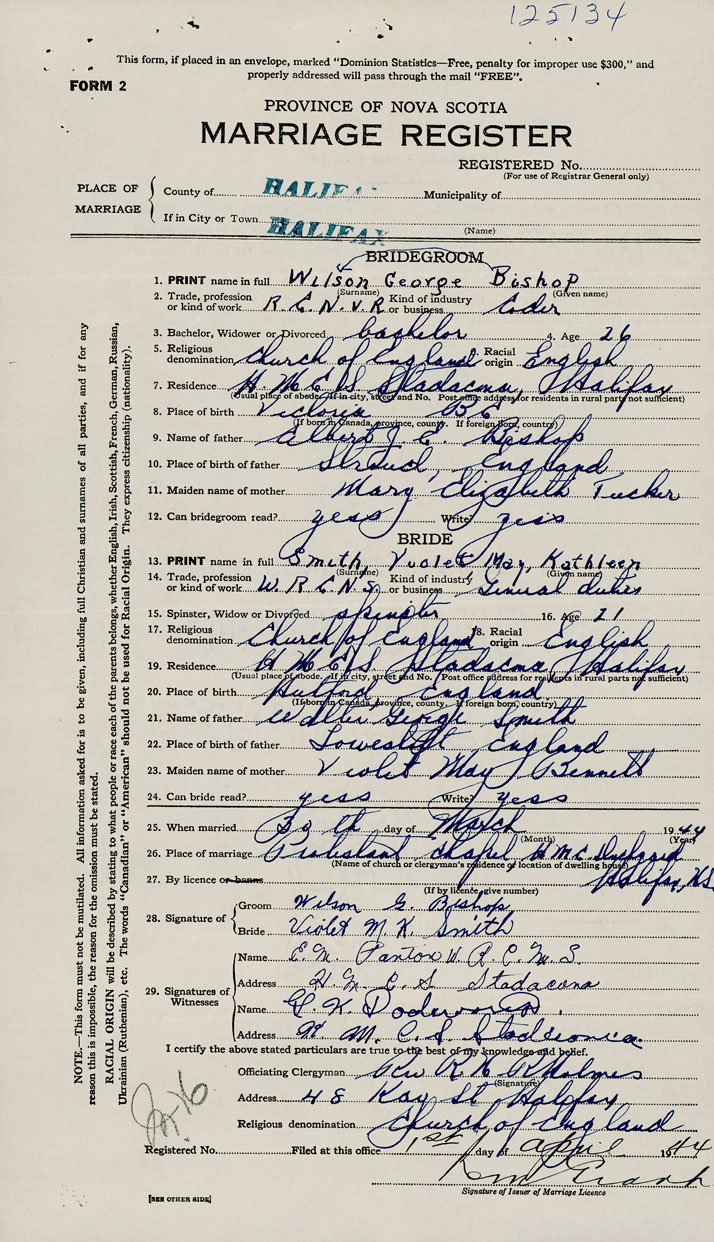 125134
This form, if placed in an envelope, marked "Dominion Statistics—Free, penalty for improper use $300," and
properly addressed will pass through the mail "FREE".
FORM 2
PROVINCE OF NOVA SCOTIA
MARRIAGE REGISTER
REGISTERED No.
(For use of Registrar General only)
PLACE OF MARRIAGE
County of HALIFAX Municipality of
If in City or Town HALIFAX
(Name)
BRIDEGROOM
1. PRINT name in full Wilson George Bishop
(Surname) (Given name)
2. Trade, profession or kind of work R.C.N.V.R Kind of industry or business Coder
3. Bachelor, Widower or Divorced bachelor 4. Age 26
5. Religious denomination Church of England 6. Racial origin English
7. Residence H.M.C.S Stadacona, Halifax
(Usual place of abode. If in city, street and No. Post office address for residents in rural parts not sufficient)
8. Place of birth Victoria BC
(If born in Canada, province, county. If foreign born, country)
9. Name of father Albert J. E. Bishop
10. Place of birth of father Stroud, England
11. Maiden name of mother Mary Elizabeth Tucker
12. Can bridegroom read? yess Write? yess
BRIDE
13. PRINT name in full Smith, Violet May, Kathleen
(Surname) (Given name)
14. Trade, profession or kind of work W.R.C.N.S. Kind of industry or business General duties
15. Spinster, Widow or Divorced spinster 16. Age 21
17. Religious denomination Church of England 18. Racial origin English
19. Residence H M C S Stadacona, Halifax
(Usual place of abode. If in city, street and No. Post office address for residents in rural parts not sufficient)
20. Place of birth England
(If born in Canada, province, county. If foreign born, country)
21. Name of father Walter George Smith
22. Place of birth of father Lowestoft England
23. Maiden name of mother Violet May Bennett
24. Can bride read? yess Write? yess
25. When married 30 th day of March 1944
(Month) (Year)
26. Place of marriage Protestant Chapel H M C Dockyard
(Name of church or clergyman's residence or location of dwelling house)
Halifax, N.S.
27. By licence or banns
(If by licence, give number)
28. Signature of
Groom Wilson G. Bishop
Bride Violet M. K. Smith
29. Signatures of Witnesses
Name E. M. Panton W.R.C.N.S.
Address H. M. C. S. Stadacona
Name G. K.
Address H. M. C. S. Stadacona
I certify the above stated particulars are true to the best of my knowledge and belief.
Officiating Clergyman Rev R. H. Holmes
(Signature)
Address 48 Kay St Halifax
Religious denomination Church of England
Registered No. Filed at this office 1st day of April 1944
Signature of Issuer of Marriage Licence
[SEE OTHER SIDE]
NOTE.—This form must not be mutilated. All information asked for is to be given, including full Christian and surnames of all parties, and if for any
reason this is impossible, the reason for the omission must be stated.
RACIAL ORIGIN will be described by stating to what people or race each of the parents belongs, whether English, Irish, Scottish, French, German, Russian,
Ukrainian (Ruthenian), etc. The words "Canadian" or "American" should not be used for Racial Origin. They express citizenship (nationality).